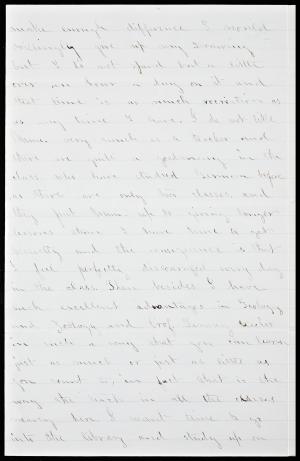 make enough difference I would
willingly give up my Drawing
but I do not spend but a little
over an hour a day on it and
that time is as much recreation as
as any time I have. I do not like
very much as a teacher and
there are quite a good many in the
class who have studied German before
as there are only two classes and
they put them up to giving longer
lessons than I have time to get
perfectly and the consequence is that
I feel perfectly discouraged every day
in the class. Then besides I have
such excellent advantages in Geology
and Zoology and Prof. teaches
in such a way that you can learn
just as much or just as little as
you want to, in fact that is the
way they teach in all the classes
nearly here. I want time to go
into the library and study up on